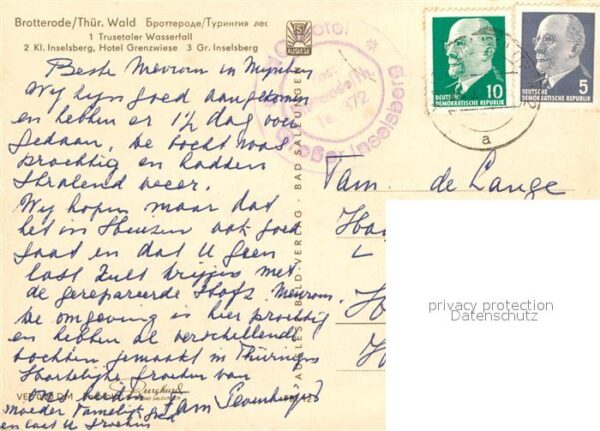 Brotterode/Thür. Wald Броттероде/Турингия лес
1 Trusetaler Wasserfall
2 Kl. Inselsberg, Hotel Grenzwiese 3 Gr. Inselsberg
Beste Mevrouw en Mijnheer
Wij zijn goed aangekomen
en hebben er 1½ dag over
gedaan, De tocht was
prachtig en hadden
stralend weer.
Wij hopen maar dat
het in Heusen ook goed
gaat en dat U geen
last zult krijgen met
de gerepareerde stofz. Mevrouw.
De omgeving is hier prachtig
en hebben al verschillende
tochten gemaakt in Thüringen
Hartelijke groeten van
ons beiden
Fam
Moeder Familie
en laat U
VEB
BAD SALZUNGEN
AUSLESE-BILD-VERLAG · BAD SALZUNGEN
Hotel
Großer Inselsberg
10
DEUTSCHE
DEMOKRATISCHE REPUBLIK
5
DEUTSCHE
DEMOKRATISCHE REPUBLIK
a
Fam. de Lange
privacy protection
Datenschutz